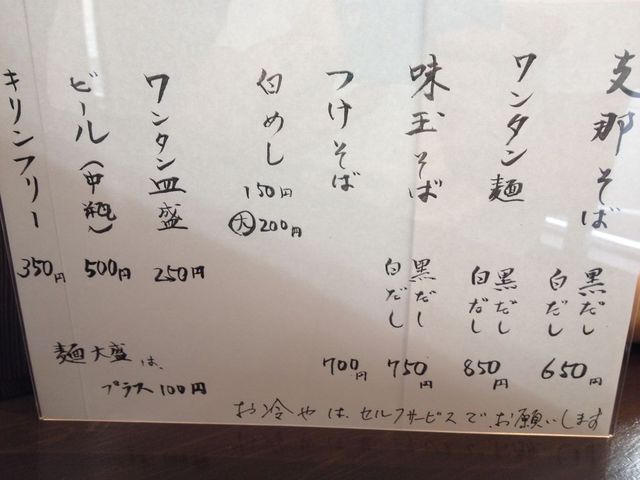 支那そば
黒だし
白だし
650円
ワンタン麺
黒だし
白だし
850円
味玉そば
黒だし
白だし
750円
つけそば
700円
白めし
150円
大 200円
ワンタン皿盛
250円
ビール(中瓶)
500円
キリンフリー
350円
麺大盛は、
プラス100円
お冷やは、セルフサービスでお願いします